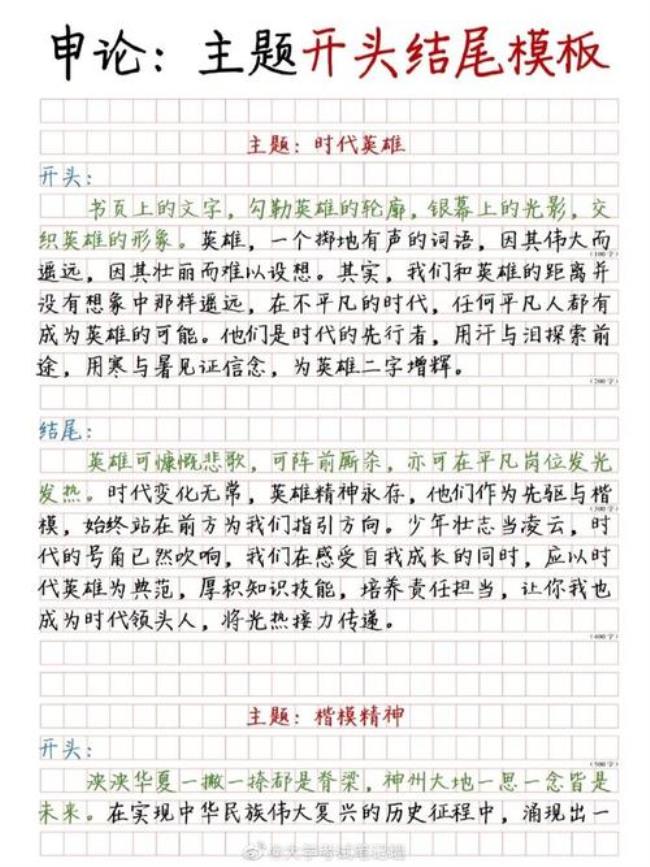 申论：主题开头结尾模板
主题：时代英雄
开头：
书页上的文字，勾勒英雄的轮廓，银幕上的光影，交
织英雄的形象。英雄，一个掷地有声的词语，因其伟大而
（100字）
遥远，因其壮丽而难以设想。其实，我们和英雄的距离并
没有想象中那样遥远，在不平凡的时代，任何平凡人都有
成为英雄的可能。他们是时代的先行者，用汗与泪探索前
途，用寒与暑见证信念，为英雄二字增辉。
（200字）
结尾：
英雄可慷慨悲歌，可阵前厮杀，亦可在平凡岗位发光
发热。时代变化无常，英雄精神永存，他们作为先驱与楷
（300字）
模，始终站在前方为我们指引方向。少年壮志当凌云，时
代的号角已然吹响，我们在感受自我成长的同时，应以时
代英雄为典范，厚积知识技能，培养责任担当，让你我也
成为时代领头人，将光热接力传递。
（400字）
主题：楷模精神
开头：
（500字）
泱泱华夏一撇一捺都是脊梁，神州大地一思一念皆是
未来。在实现中华民族伟大复兴的历史征程中，涌现出一
@大学考试笔记